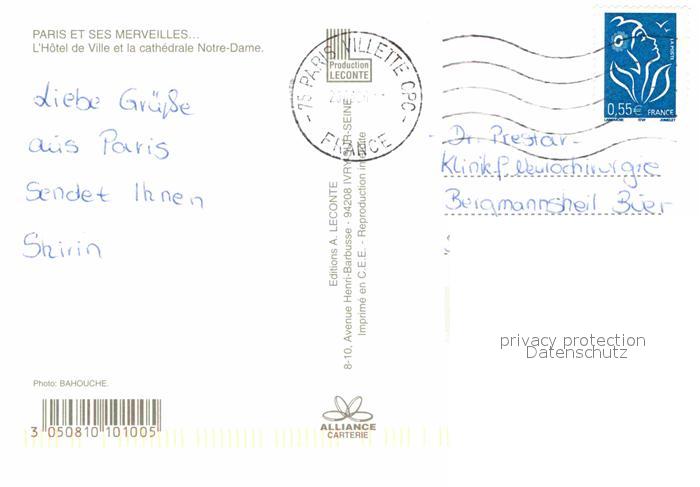 PARIS ET SES MERVEILLES...
L'Hôtel de Ville et la cathédrale Notre-Dame.
Liebe Grüße
aus Paris
Sendet Ihnen
Shirin
Photo: BAHOUCHE.
3 050810 101005
Production
LECONTE
75 PARIS VILLETTE CPC
FRANCE
Editions A. LECONTE
8-10, Avenue Henri-Barbusse - 94208 IVRY-SUR-SEINE
Imprimé en C.E.E. - Reproduction interdite
ALLIANCE
CARTERIE
LA POSTE
0,55€ FRANCE
LAMOUCHE ITVF JUMELET
Dr. Prestar
Klinik f Neurochirurgie
Bergmannsheil Buer
privacy protection
Datenschutz